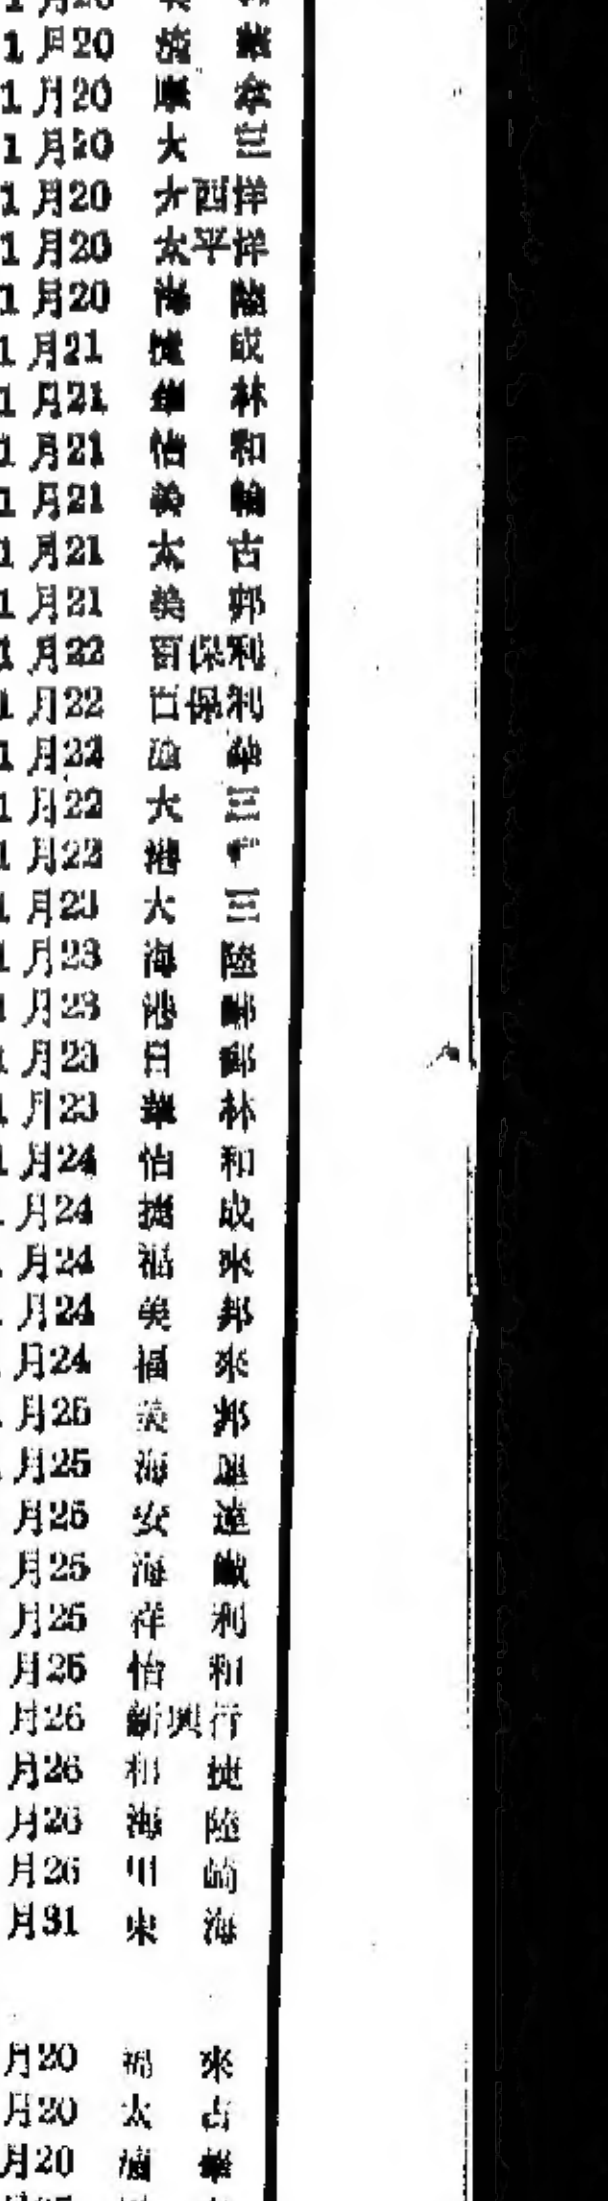 1月20
1月20
1月20 大三
1月20 大西洋
1月20 太平洋
1月20 海陸
1月21 捷成
1月21 林
1月21 怡和
1月21 美輪
1月21 太古
1月21 美邦
1月22 百保利
1月22 百保利
1月22 渣華
1月22 大三
1月22 港
1月23 大三
1月23 海陸
1月23 港
1月23 日郵
1月23 華林
1月24 怡和
月24 捷成
月24 福來
月24 美邦
月24 福來
月25 美邦
月25 海運
月25 安達
月25 海
月25 祥利
月25 怡和
月26 新興行
月26 和捷
月26 海陸
月26 川崎
月31 東海
月20 福來
月20 太古
月20